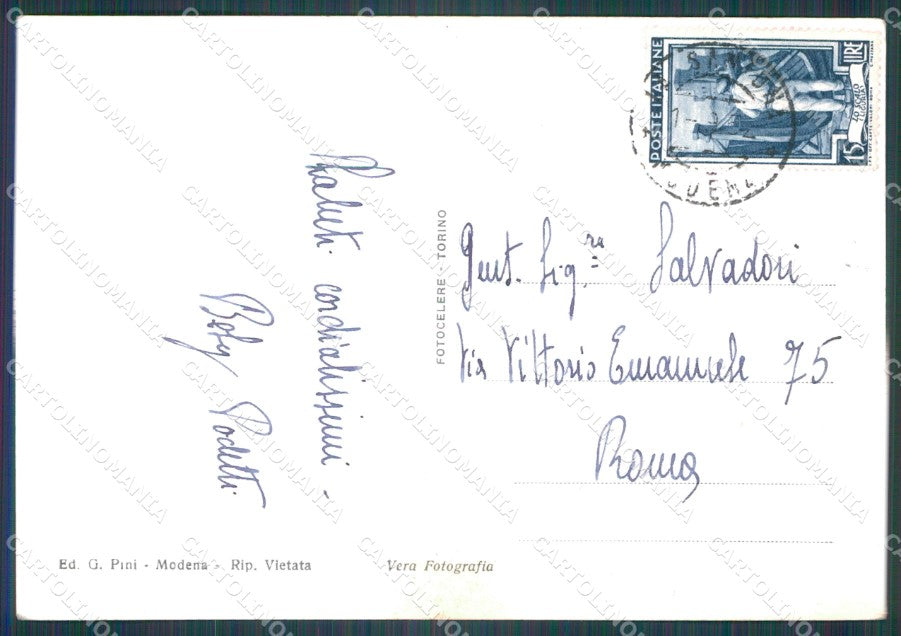 Saluti cordialissimi -
Boby Podetti
FOTOCELERE - TORINO
Gent. Sig.ra Salvadori
Via Vittorio Emanuele 75
Roma
Ed. G. Pini - Modena - Rip. Vietata
Vera Fotografia
POSTE ITALIANE
LIRE
15
LO SCALO
LIGURIA
MODENA
CARTOLINOMANIA